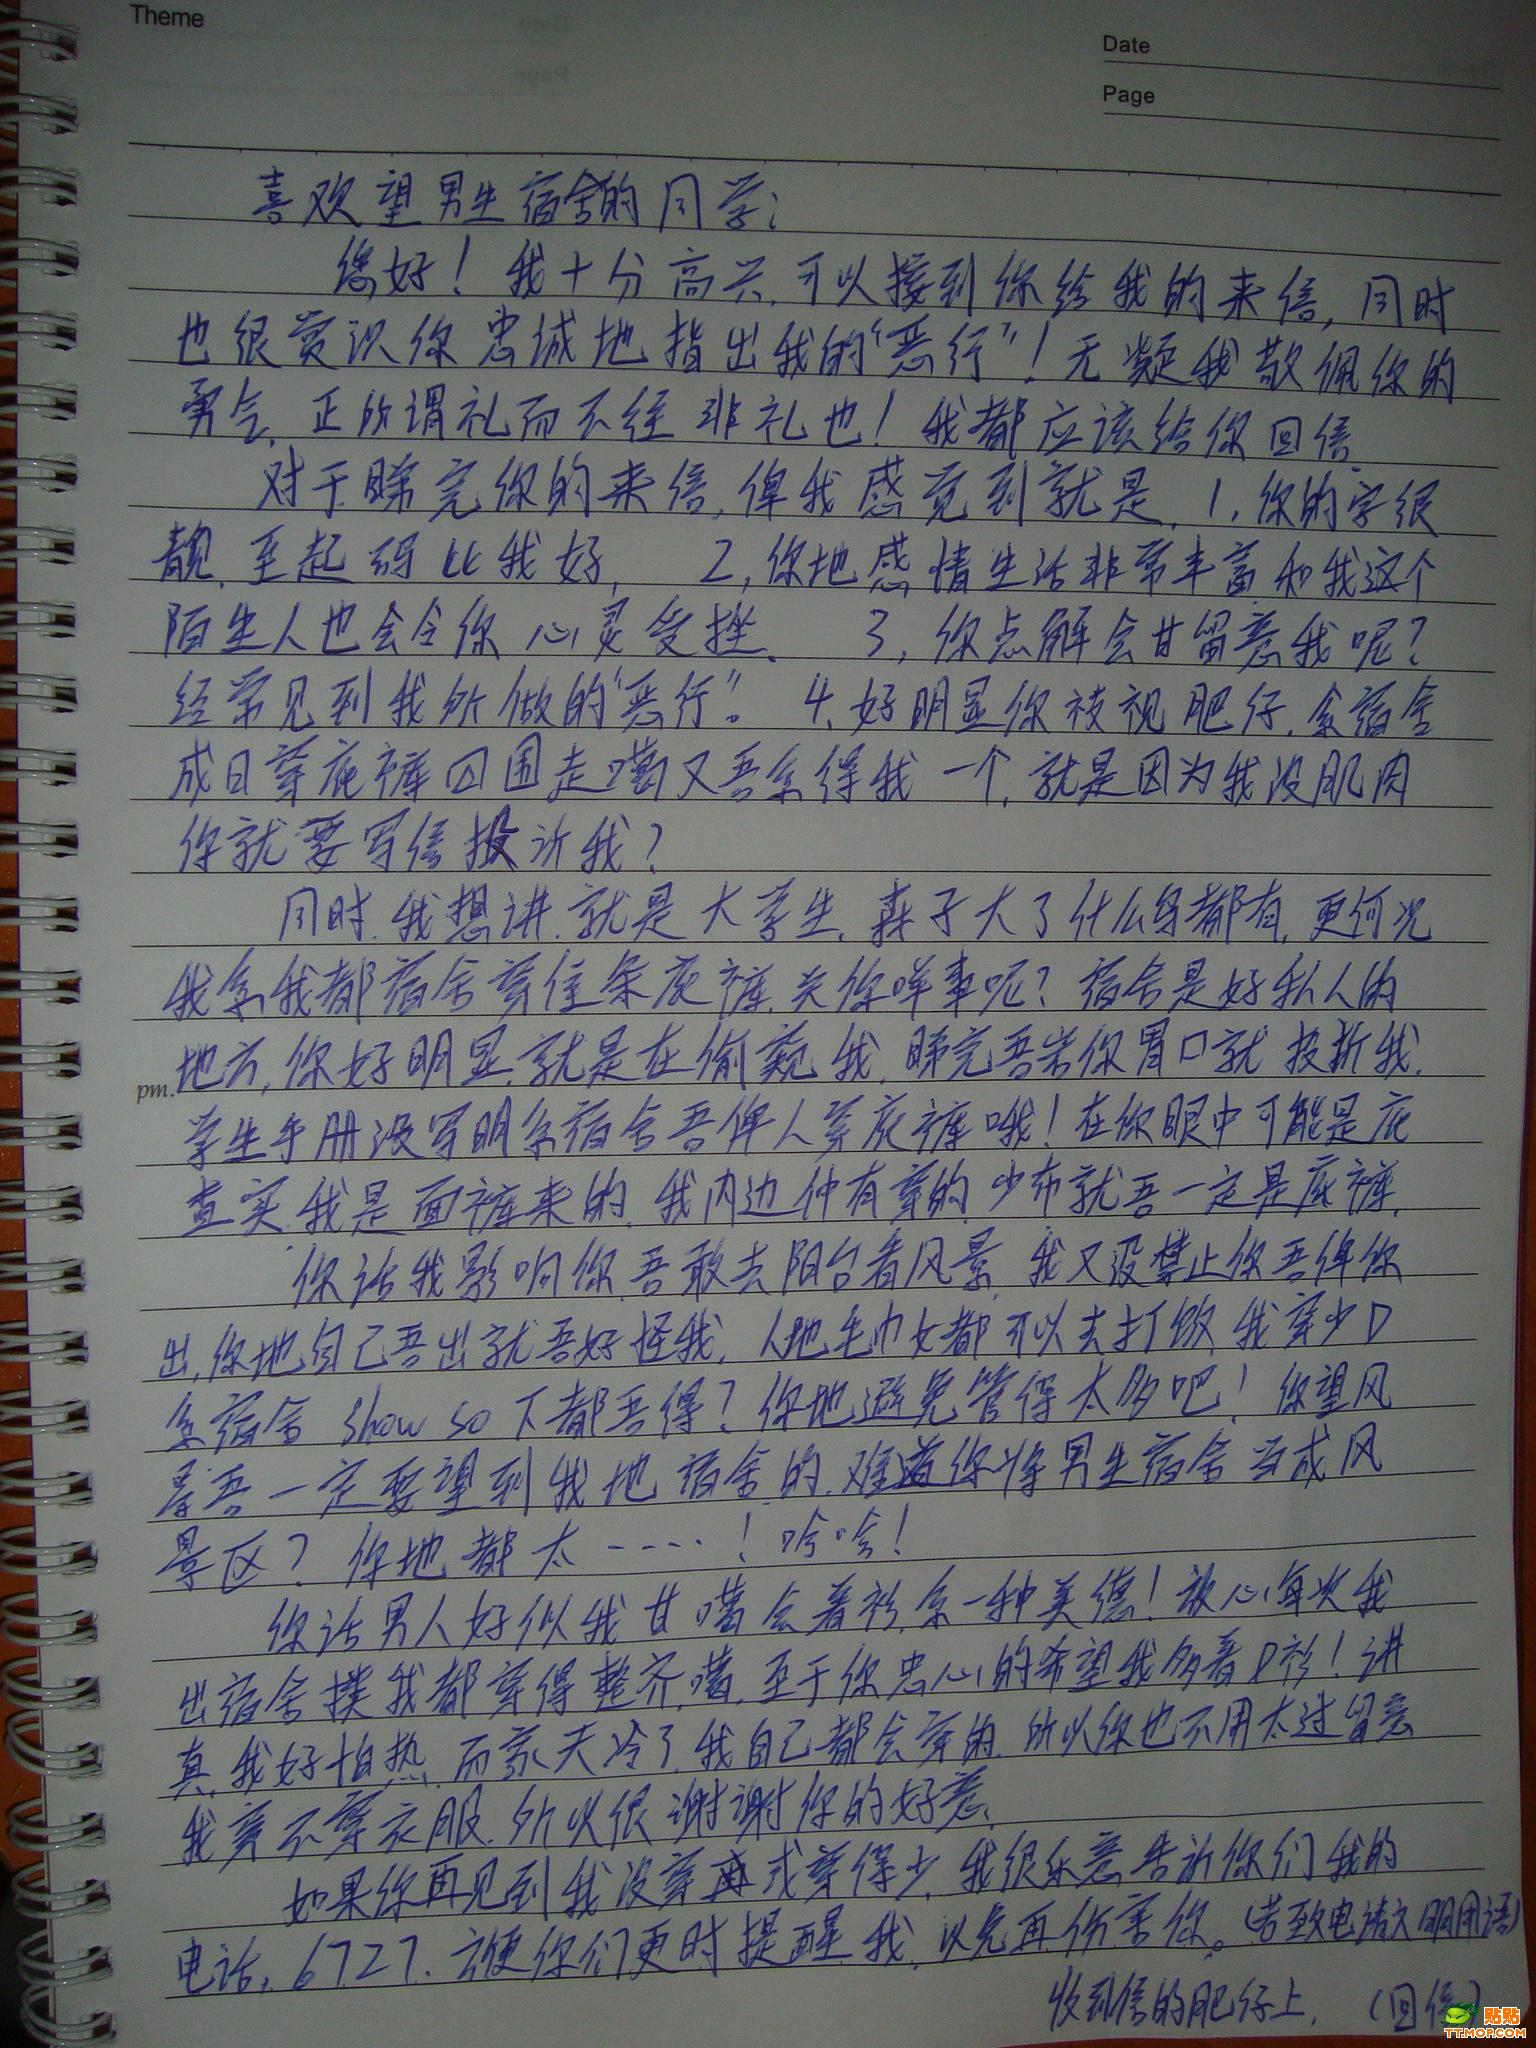 Theme
Date
Page
喜欢望男生宿舍的同学：
您好！我十分高兴,可以接到你给我的来信,同时
也很赏识你忠诚地指出我的“恶行”！无疑我敬佩你的
勇气,正所谓礼而不往非礼也！我都应该给你回信.
对于睇完你的来信,俾我感觉到就是,1,你的字很
靓,至起码比我好, 2,你地感情生活非常丰富和我这个
陌生人也会令你心灵受挫. 3,你点解会甘留意我呢？
经常见到我所做的“恶行”。 4,好明显你歧视肥仔,系宿舍
成日穿底裤四围走嘅又吾系得我一个,就是因为我没肌肉
你就要写信投诉我？
同时,我想讲,就是大学生,森子大了什么鸟都有,更何况
我系我都宿舍穿住条底裤,关你咩事呢？宿舍是好私人的
地方,你好明显,就是在偷窥我,睇完吾岩你胃口就投拆我.
pm.
学生手册没写明系宿舍吾俾人穿底裤哦！在你眼中可能是底
查实,我是面裤来的,我内边仲有穿的,少布就吾一定是底裤.
你话我影响你吾敢去阳台看风景,我又没禁止你吾俾你
出,你地自己吾出就吾好怪我,人地毛巾女都可以去打饭,我穿少D
系宿舍 show so 下都吾得？你地避免管得太多吧！你望风
景吾一定要望到我地宿舍的,难道你将男生宿舍当成风
景区？你地都太·····！哈哈！
你话男人好似我甘嘅会着衫,系一种美德！放心,每次我
出宿舍揼我都穿得整齐嘅,至于你忠心的希望我多着D衫！讲
真,我好怕热,而家天冷了,我自己都会穿的,所以你也不用太过留意
我穿不穿衣服,所以很谢谢你的好意,
如果你再见到我没穿或穿得少,我很乐意告诉你们我的
电话,6727,方便你们更时提醒我,以免再伤害你。(若致电请文明用语)
收到信的肥仔上. (回信)
贴贴
TT.MOP.COM